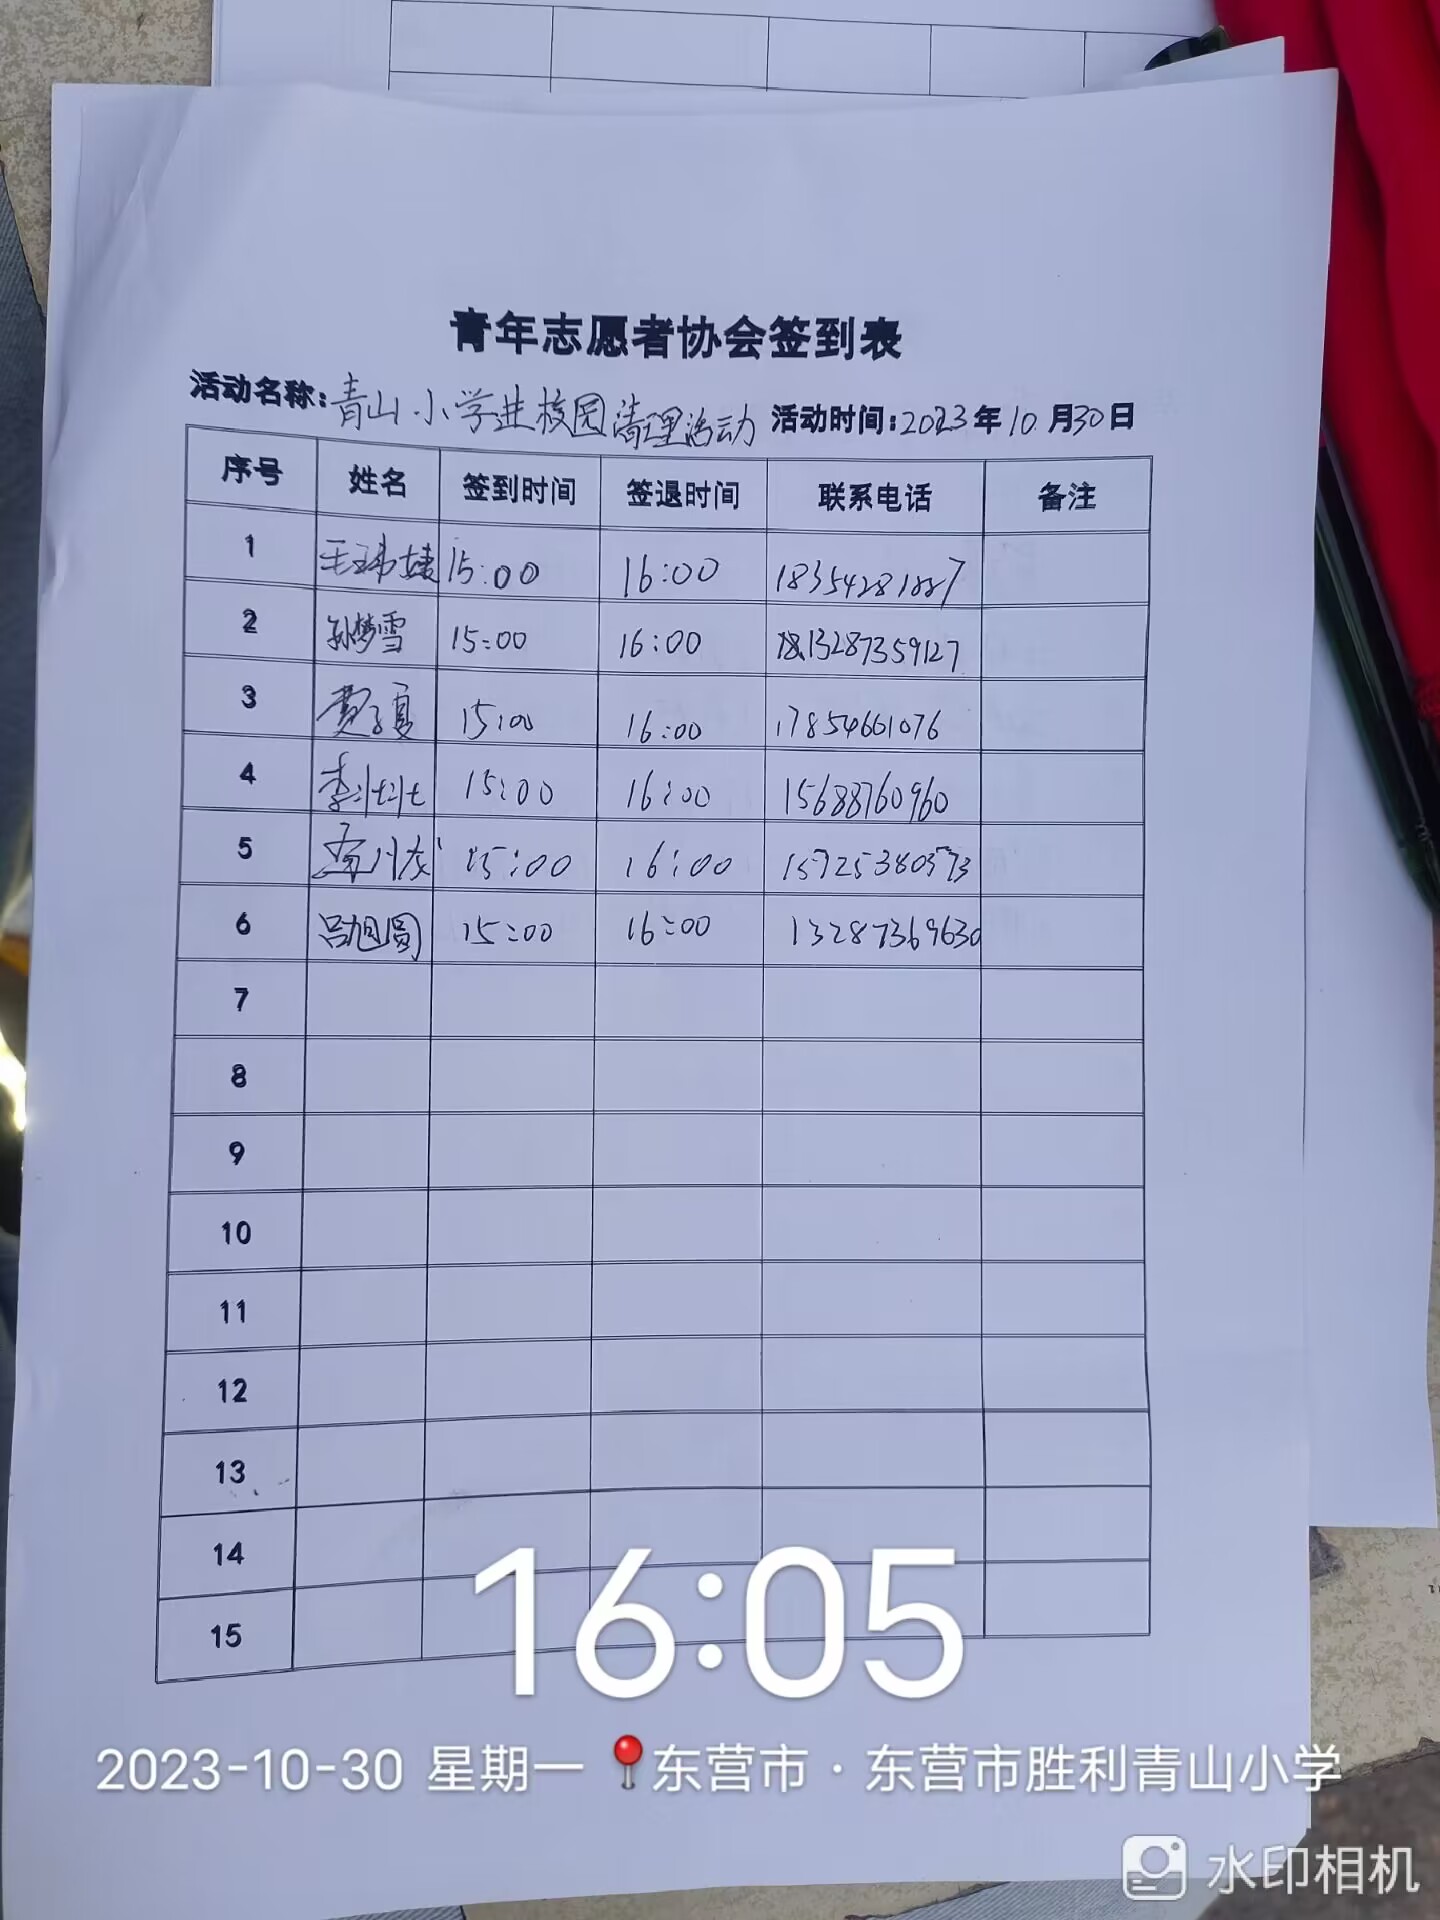 青年志愿者协会签到表
活动名称:青山小学进校园清理活动 活动时间:2023年10月30日
序号 姓名 签到时间 签退时间 联系电话 备注
1 王玮婕 15:00 16:00
2 孙梦雪 15:00 16:00 13287359127
3 15:00 16:00 17854661076
4 15:00 16:00 15688760960
5 15:00 16:00 15725380573
6 吕旭圆 15:00 16:00 13287369630
7
8
9
10
11
12
13
14
15
16:05
2023-10-30 星期一 东营市·东营市胜利青山小学
水印相机